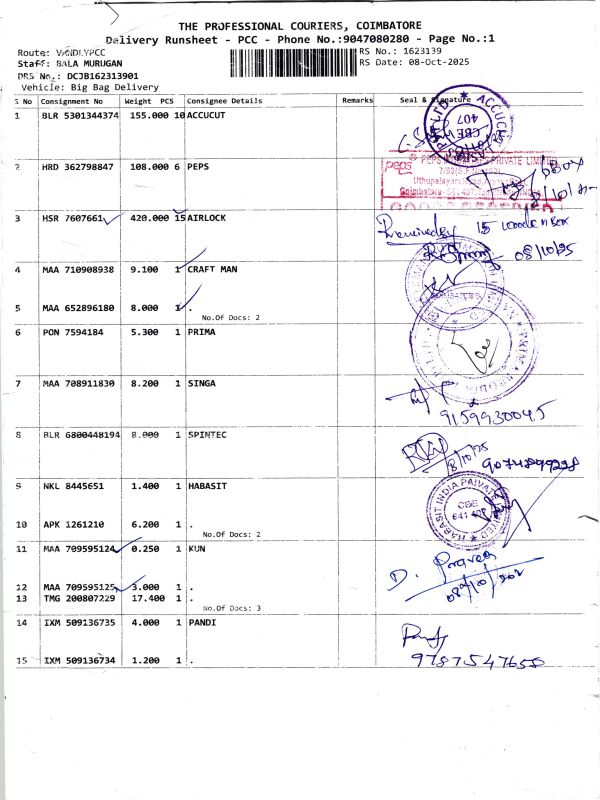 THE PROFESSIONAL COURIERS, COIMBATORE
Delivery Runsheet - PCC - Phone No.:9047080280 - Page No.:1
Route: VANDLYPCC
RS No.: 1623139
Staff: BALA MURUGAN
RS Date: 08-Oct-2025
DRS No.: DCJB162313901
Vehicle: Big Bag Delivery
S No Consignment No Weight PCS Consignee Details Remarks Seal & Signature
1 BLR 5301344374 155.000 10 ACCUCUT
CBE
407
2 HRD 362798847 108.000 6 PEPS
peps PRIVATE LIMITED
3 HSR 7607661 420.000 15 AIRLOCK
15 wooden Box
08/10/25
4 MAA 710908938 9.100 1 CRAFT MAN
5 MAA 652896180 8.000 1 .
No.Of Docs: 2
6 PON 7594184 5.300 1 PRIMA
7 MAA 708911830 8.200 1 SINGA
9159930045
8 BLR 6800448194 8.000 1 SPINTEC
8/10/25
9074899298
9 NKL 8445651 1.400 1 HABASIT
HABASIT INDIA PRIVATE LIMITED
CBE
10 APK 1261210 6.200 1 .
No.Of Docs: 2
11 MAA 709595124 0.250 1 KUN
12 MAA 709595125 3.000 1 .
13 TMG 200807229 17.400 1 .
No.Of Docs: 3
14 IXM 509136735 4.000 1 PANDI
15 IXM 509136734 1.200 1 .
9787547658